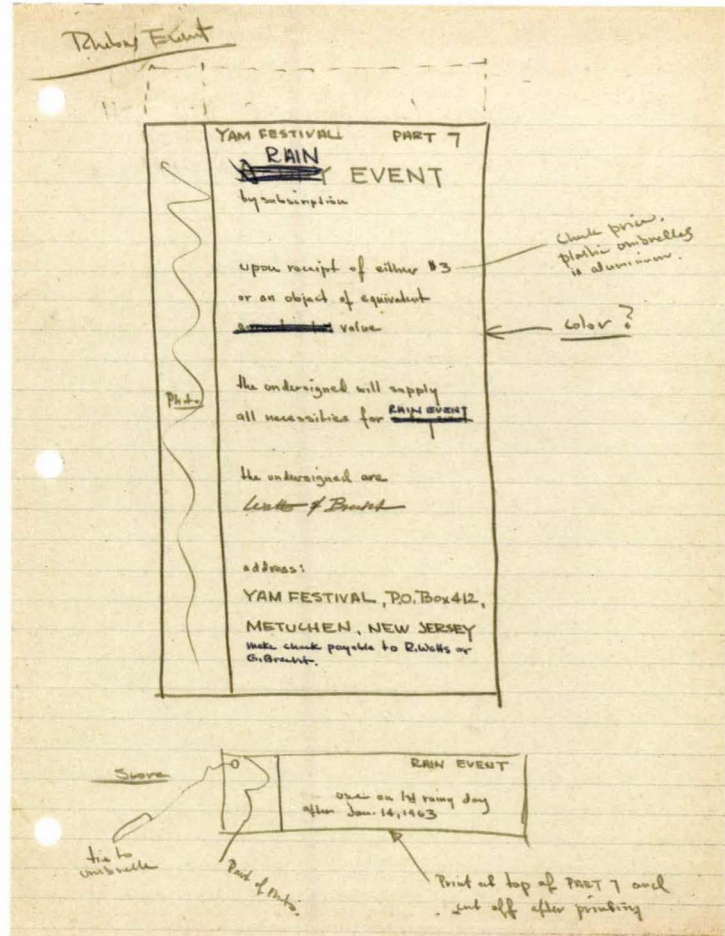 Event
YAM FESTIVAL PART 7
RAIN
EVENT
by subscription
upon receipt of either $3
or an object of equivalent
value
check price,
plastic umbrellas
in aluminium.
color?
Photo
the undersigned will supply
all necessities for RAIN EVENT
the undersigned are
Watts & Brecht
address:
YAM FESTIVAL, P.O. Box 412,
METUCHEN, NEW JERSEY
make check payable to R. Watts or
G. Brecht.
Score
RAIN EVENT
use on 1st rainy day
after Jan. 14, 1963
tie to
umbrella
Part of Photo.
Print at top of PART 7 and
cut off after printing